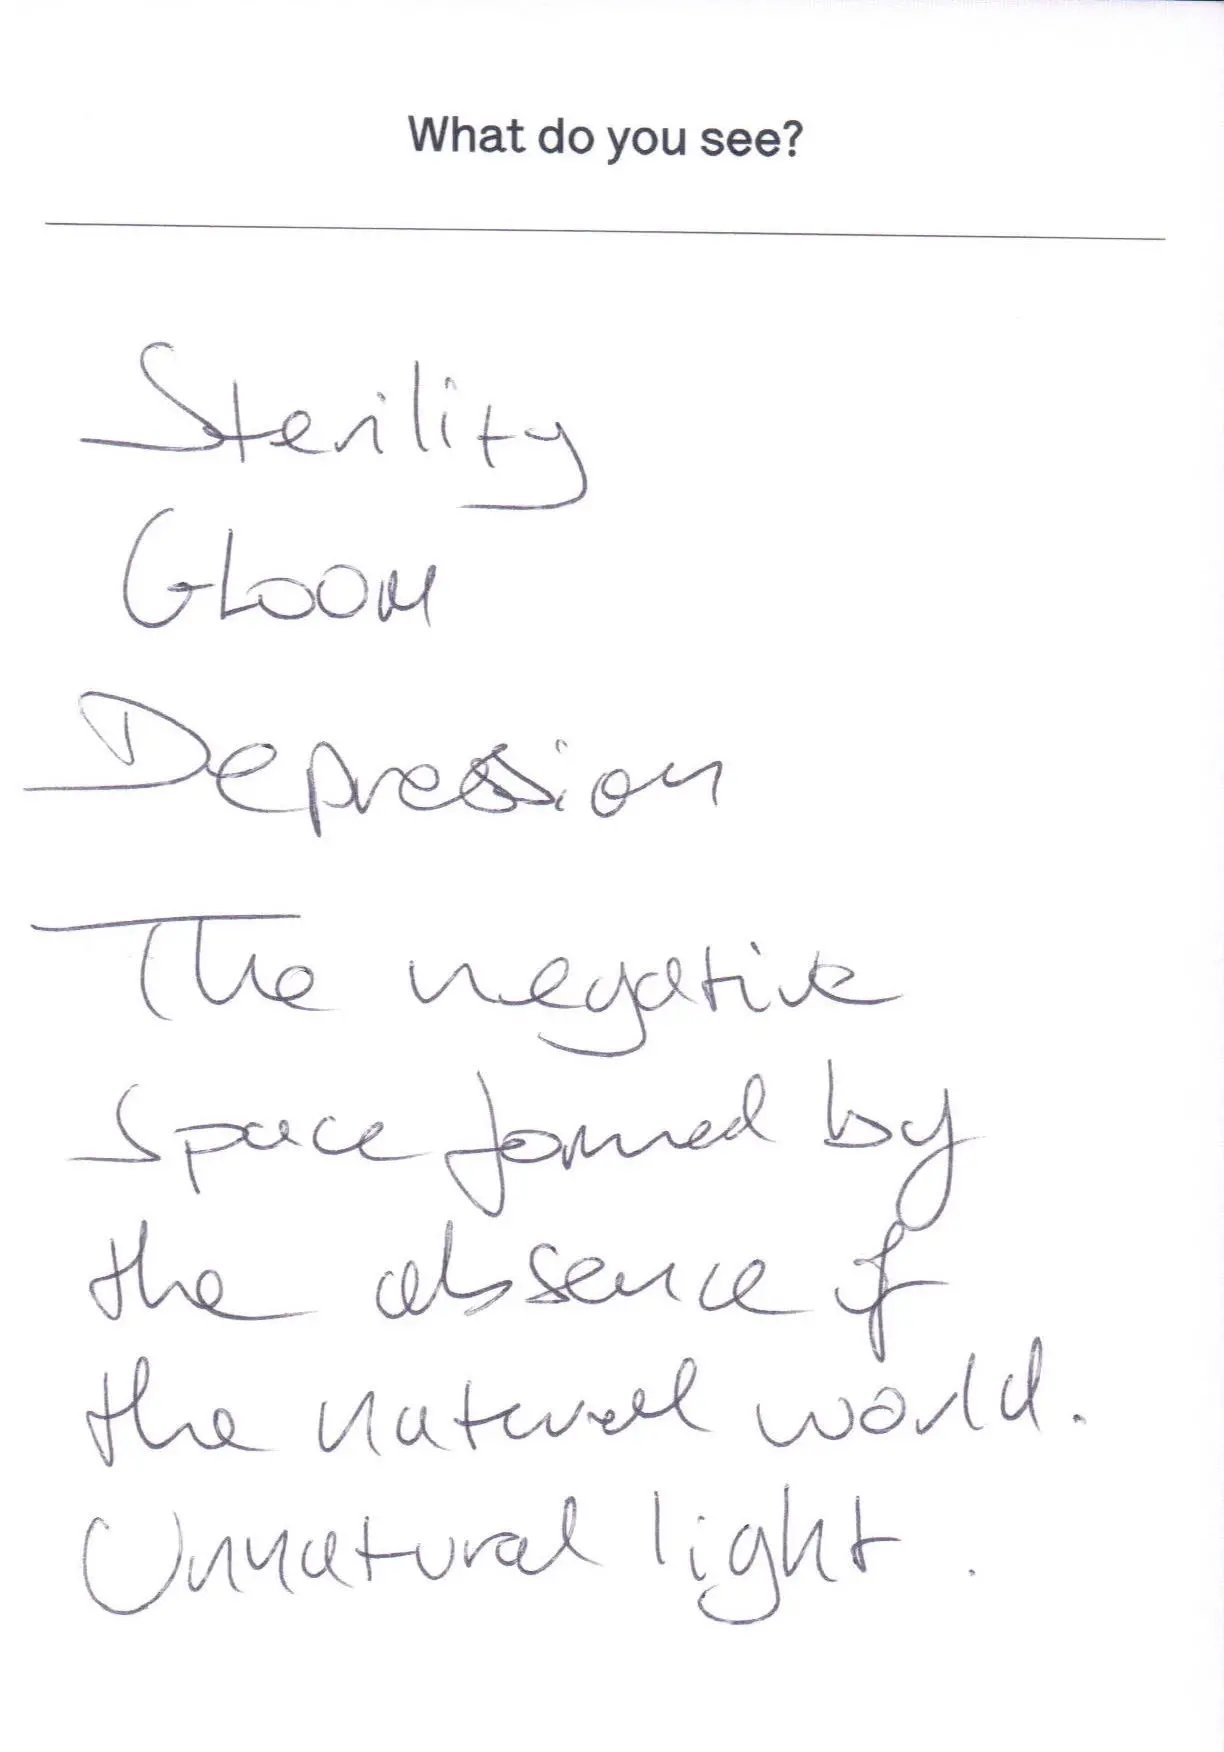 What do you see?
Sterility
GLOOM
Depression
The negative
space formed by
the absence of
the natural world.
Unnatural light.